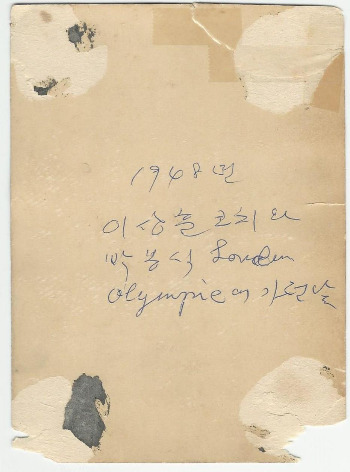 1948년
이상훈 코치와
박봉식 London
Olympic에 가던날